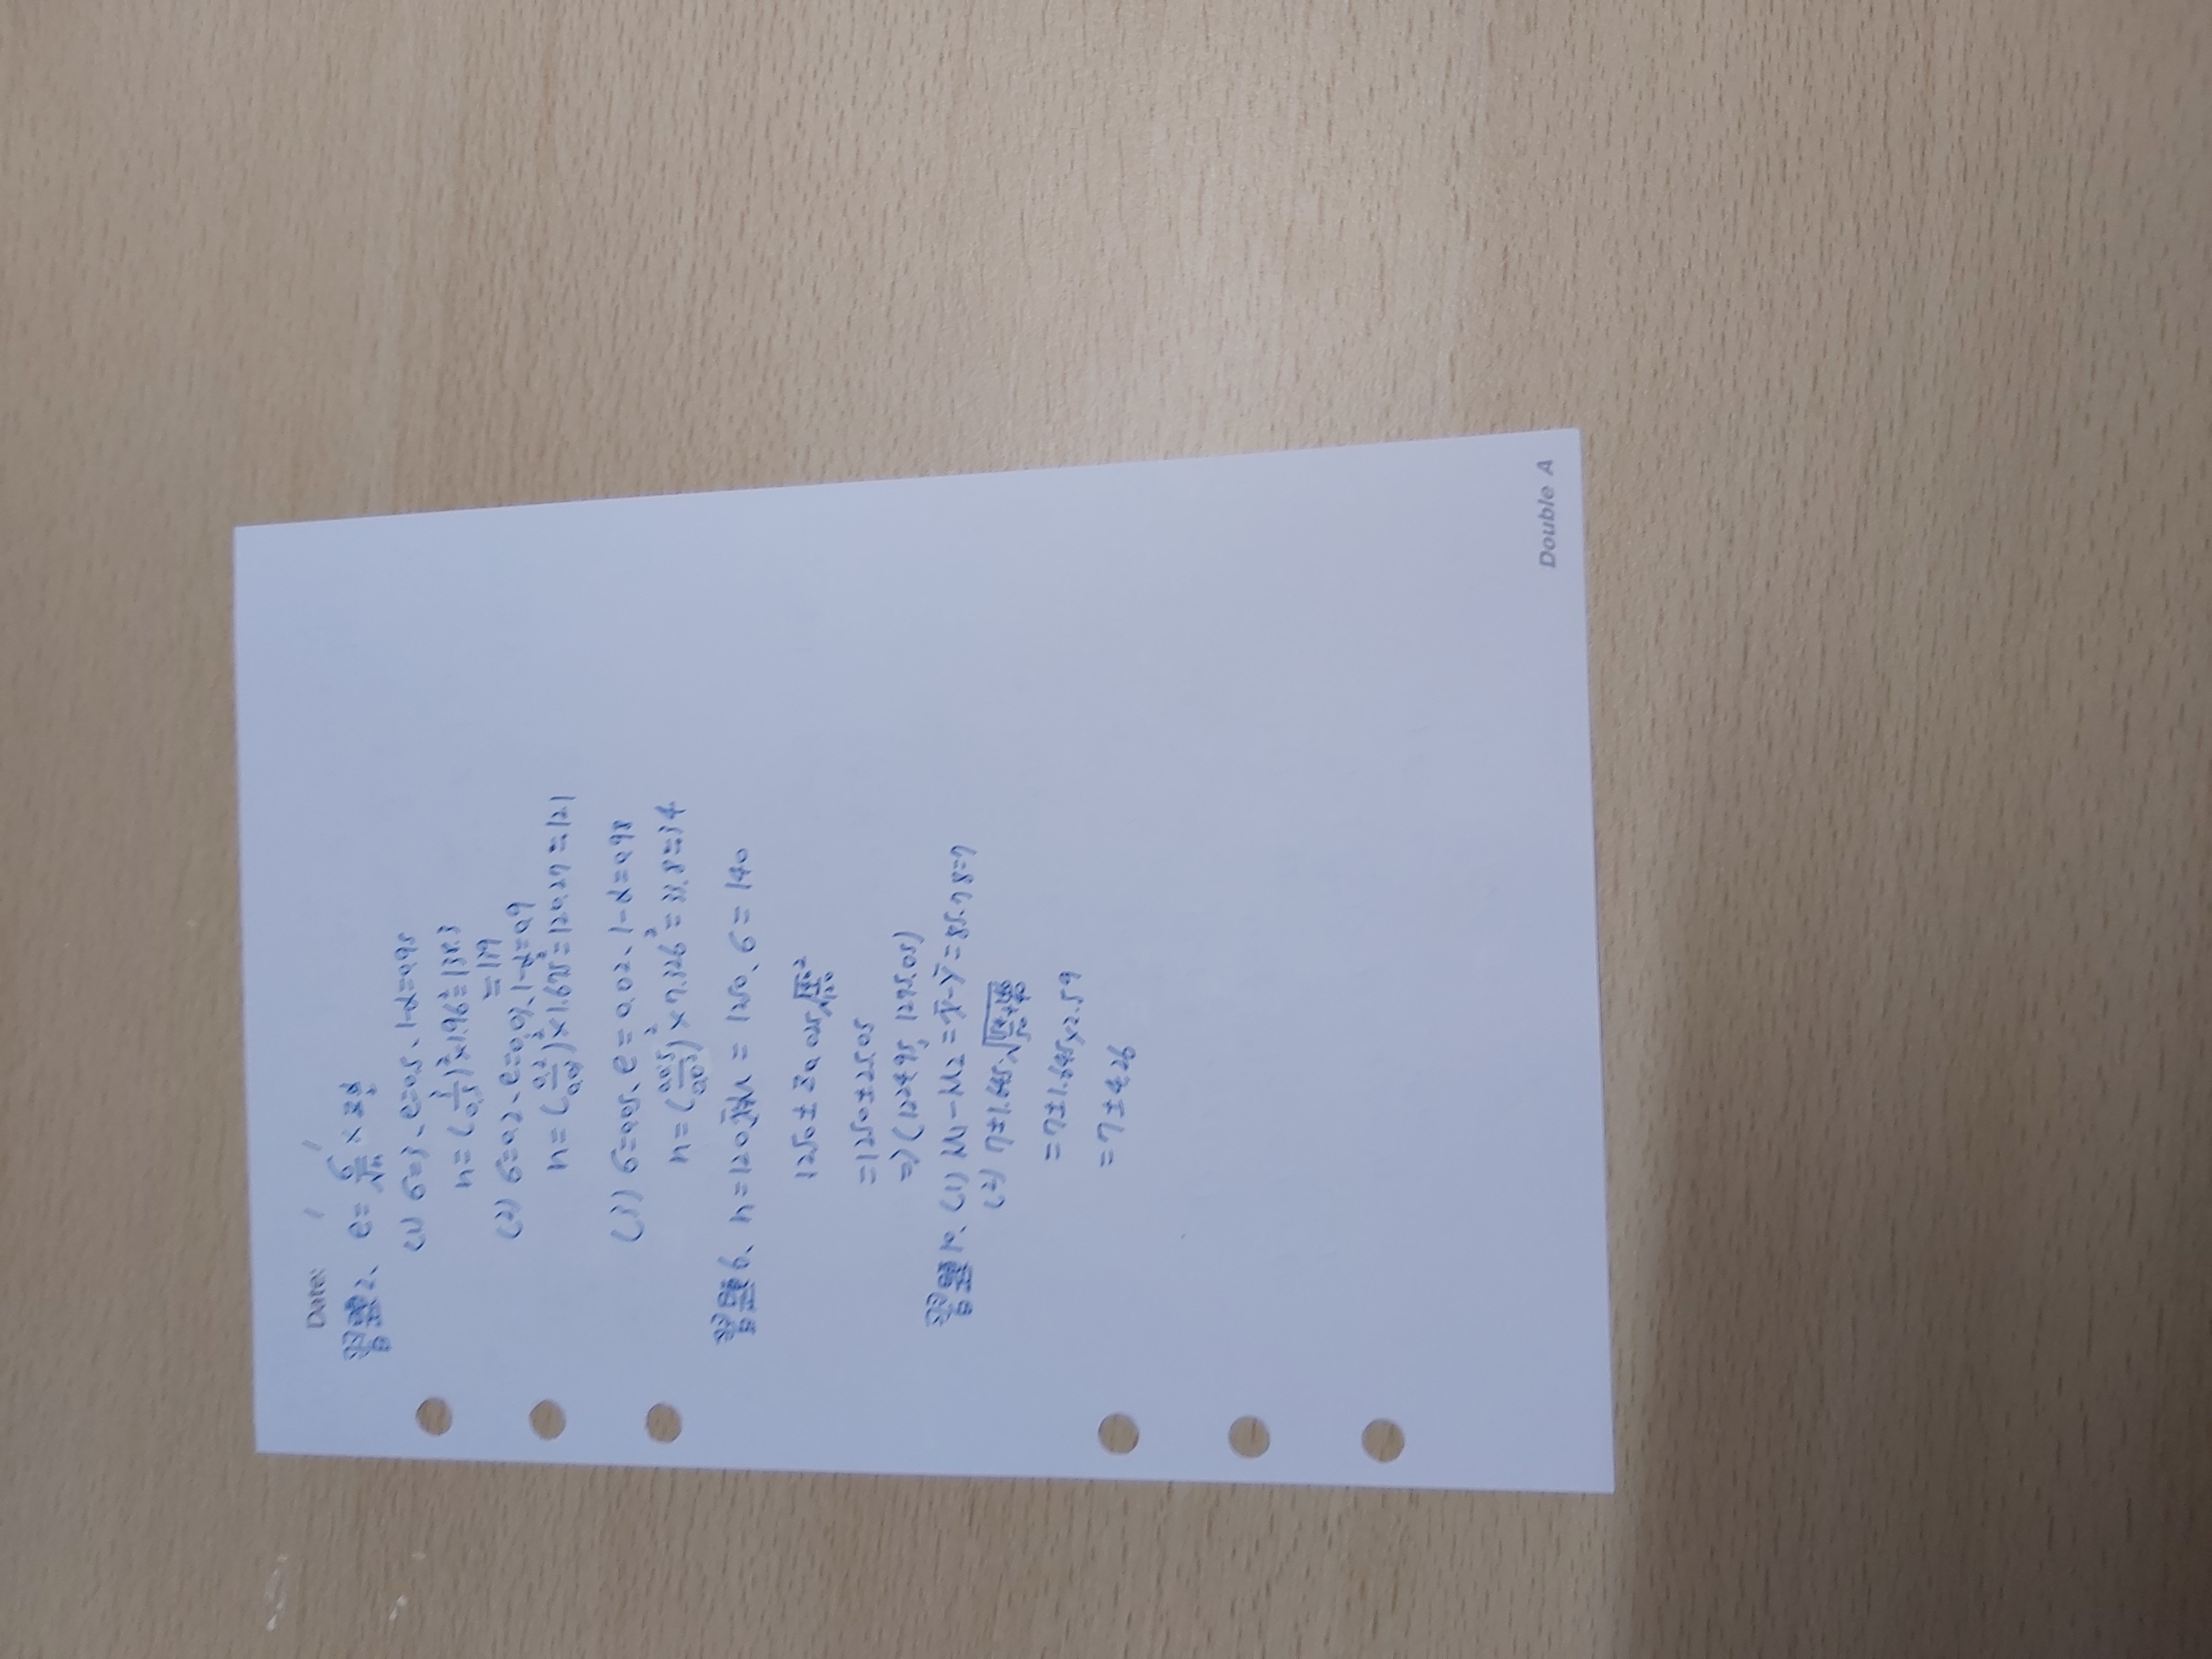 Date: / /
習題2、 e = σ/√n × z α/2
(1) σ=3、e=0.5、1-α=0.95
n = (3/0.5)² × 1.96² = 138.3
= 139
(2) σ=0.2、e=0.03、1-α=0.9
n = (0.2/0.03)² × 1.645² = 120.27 = 121
(3) σ=0.05、e = 0.02、1-α=0.98
n = (0.05/0.02)² × 2.326² = 33.8 = 34
習題6、 n = 120、= 1250、σ = 140
1250 ± z0.025 √140²/120
= 1250 ± 25.05
⇒ (1224.95, 1275.05)
習題10、(1) μ1 - μ2 = x̄ - ȳ = 85-78=7
(2) 7 ± 1.645 √
= 7 ± 1.645 × 2.59
= 7 ± 4.26
Double A